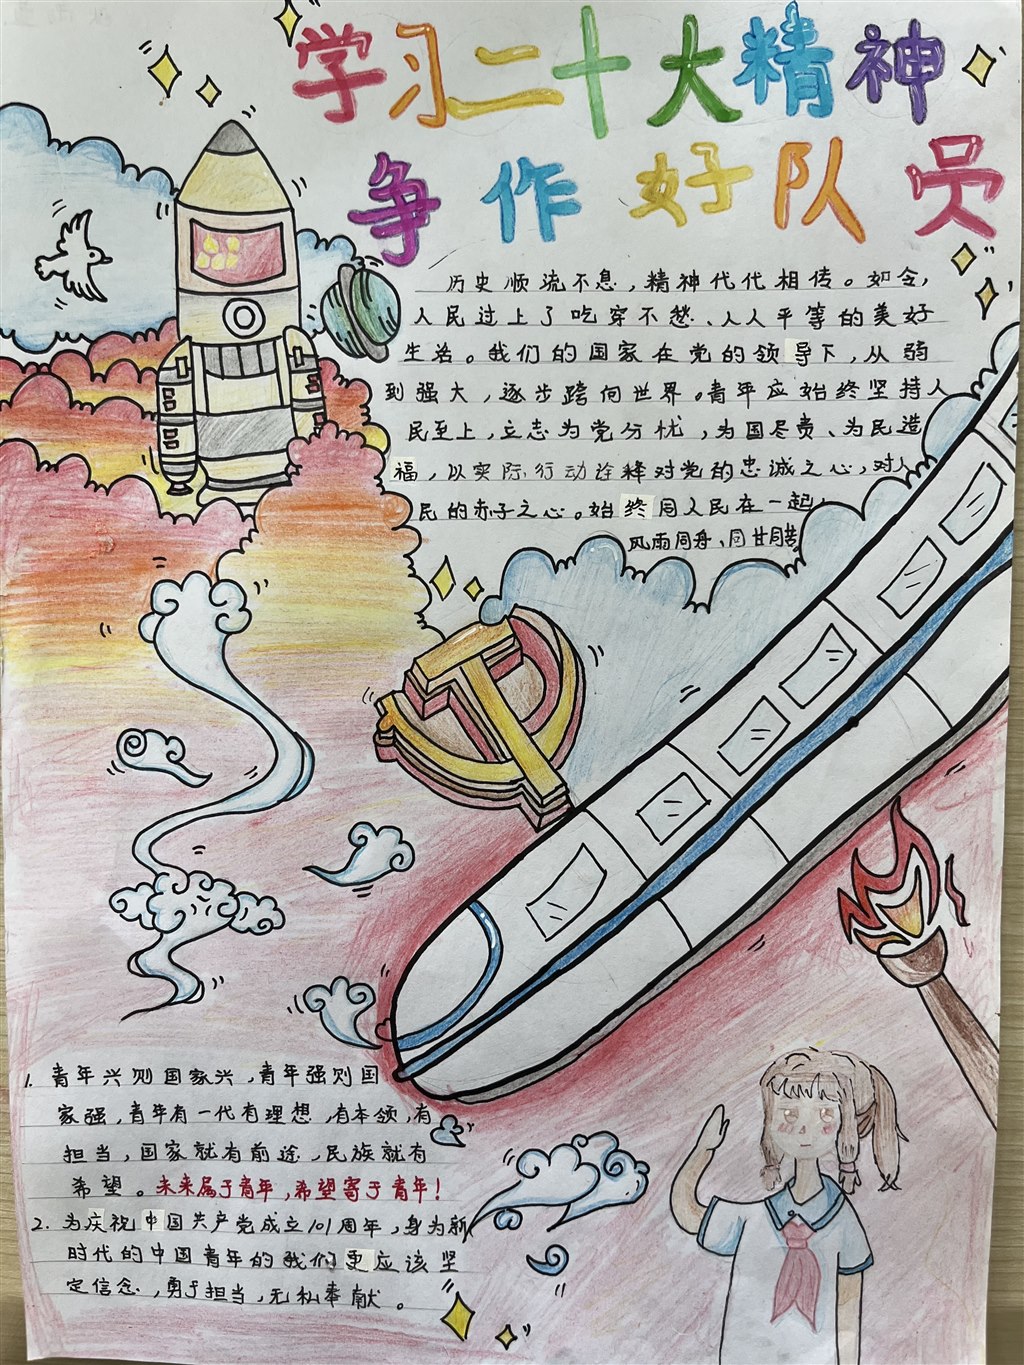 学习二十大精神
争作好队员
历史顺流不息，精神代代相传。如今，
人民过上了吃穿不愁、人人平等的美好
生活。我们的国家在党的领导下，从弱
到强大，逐步跨向世界。青年应始终坚持人
民至上，立志为党分忧，为国尽责、为民造
福，以实际行动诠释对党的忠诚之心，对人
民的赤子之心。始终同人民在一起，
风雨同舟、同甘同苦
1. 青年兴则国家兴，青年强则国
家强，青年有一代有理想，有本领，有
担当，国家就有前途，民族就有
希望。未来属于青年，希望寄于青年！
2. 为庆祝中国共产党成立101周年，身为新
时代的中国青年的我们更应该坚
定信念，勇于担当，无私奉献。